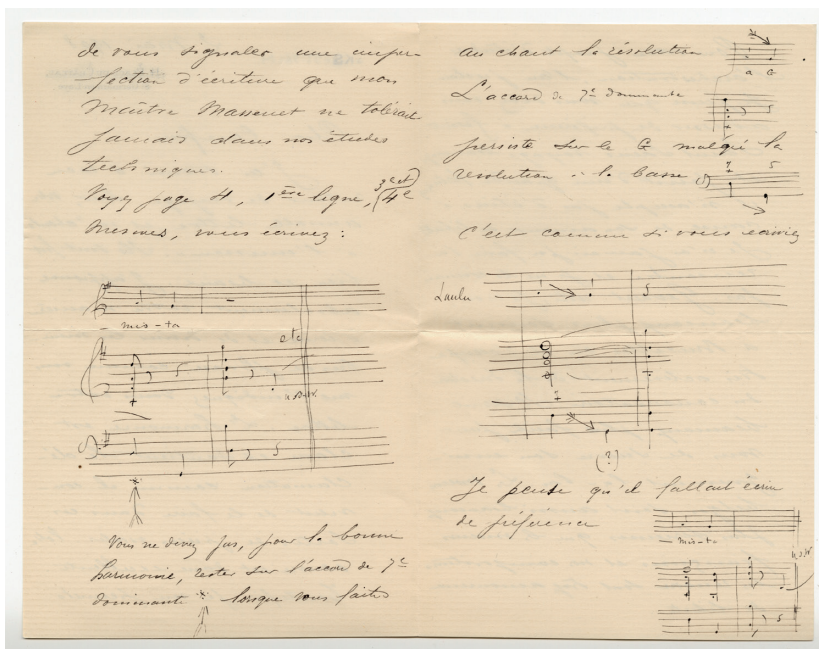 de vous signaler une imper-
fection d'écriture que mon
Maître Massenet ne tolérait
jamais dans nos études
techniques.
Voyez page 4, 1ère ligne, (3e et) 4e
Mesures, vous écrivez :
- mis - ta
etc
Vous ne devez pas, pour la bonne
harmonie, rester sur l'accord de 7e
dominante lorsque vous faites
au chant la résolution
a G
L'accord de 7e dominante
persiste sur le G malgré la
7 5
résolution à la basse
C'est comme si vous écriviez
7
(?)
Je pense qu'il fallait écrire
de préférence
- mis - ta